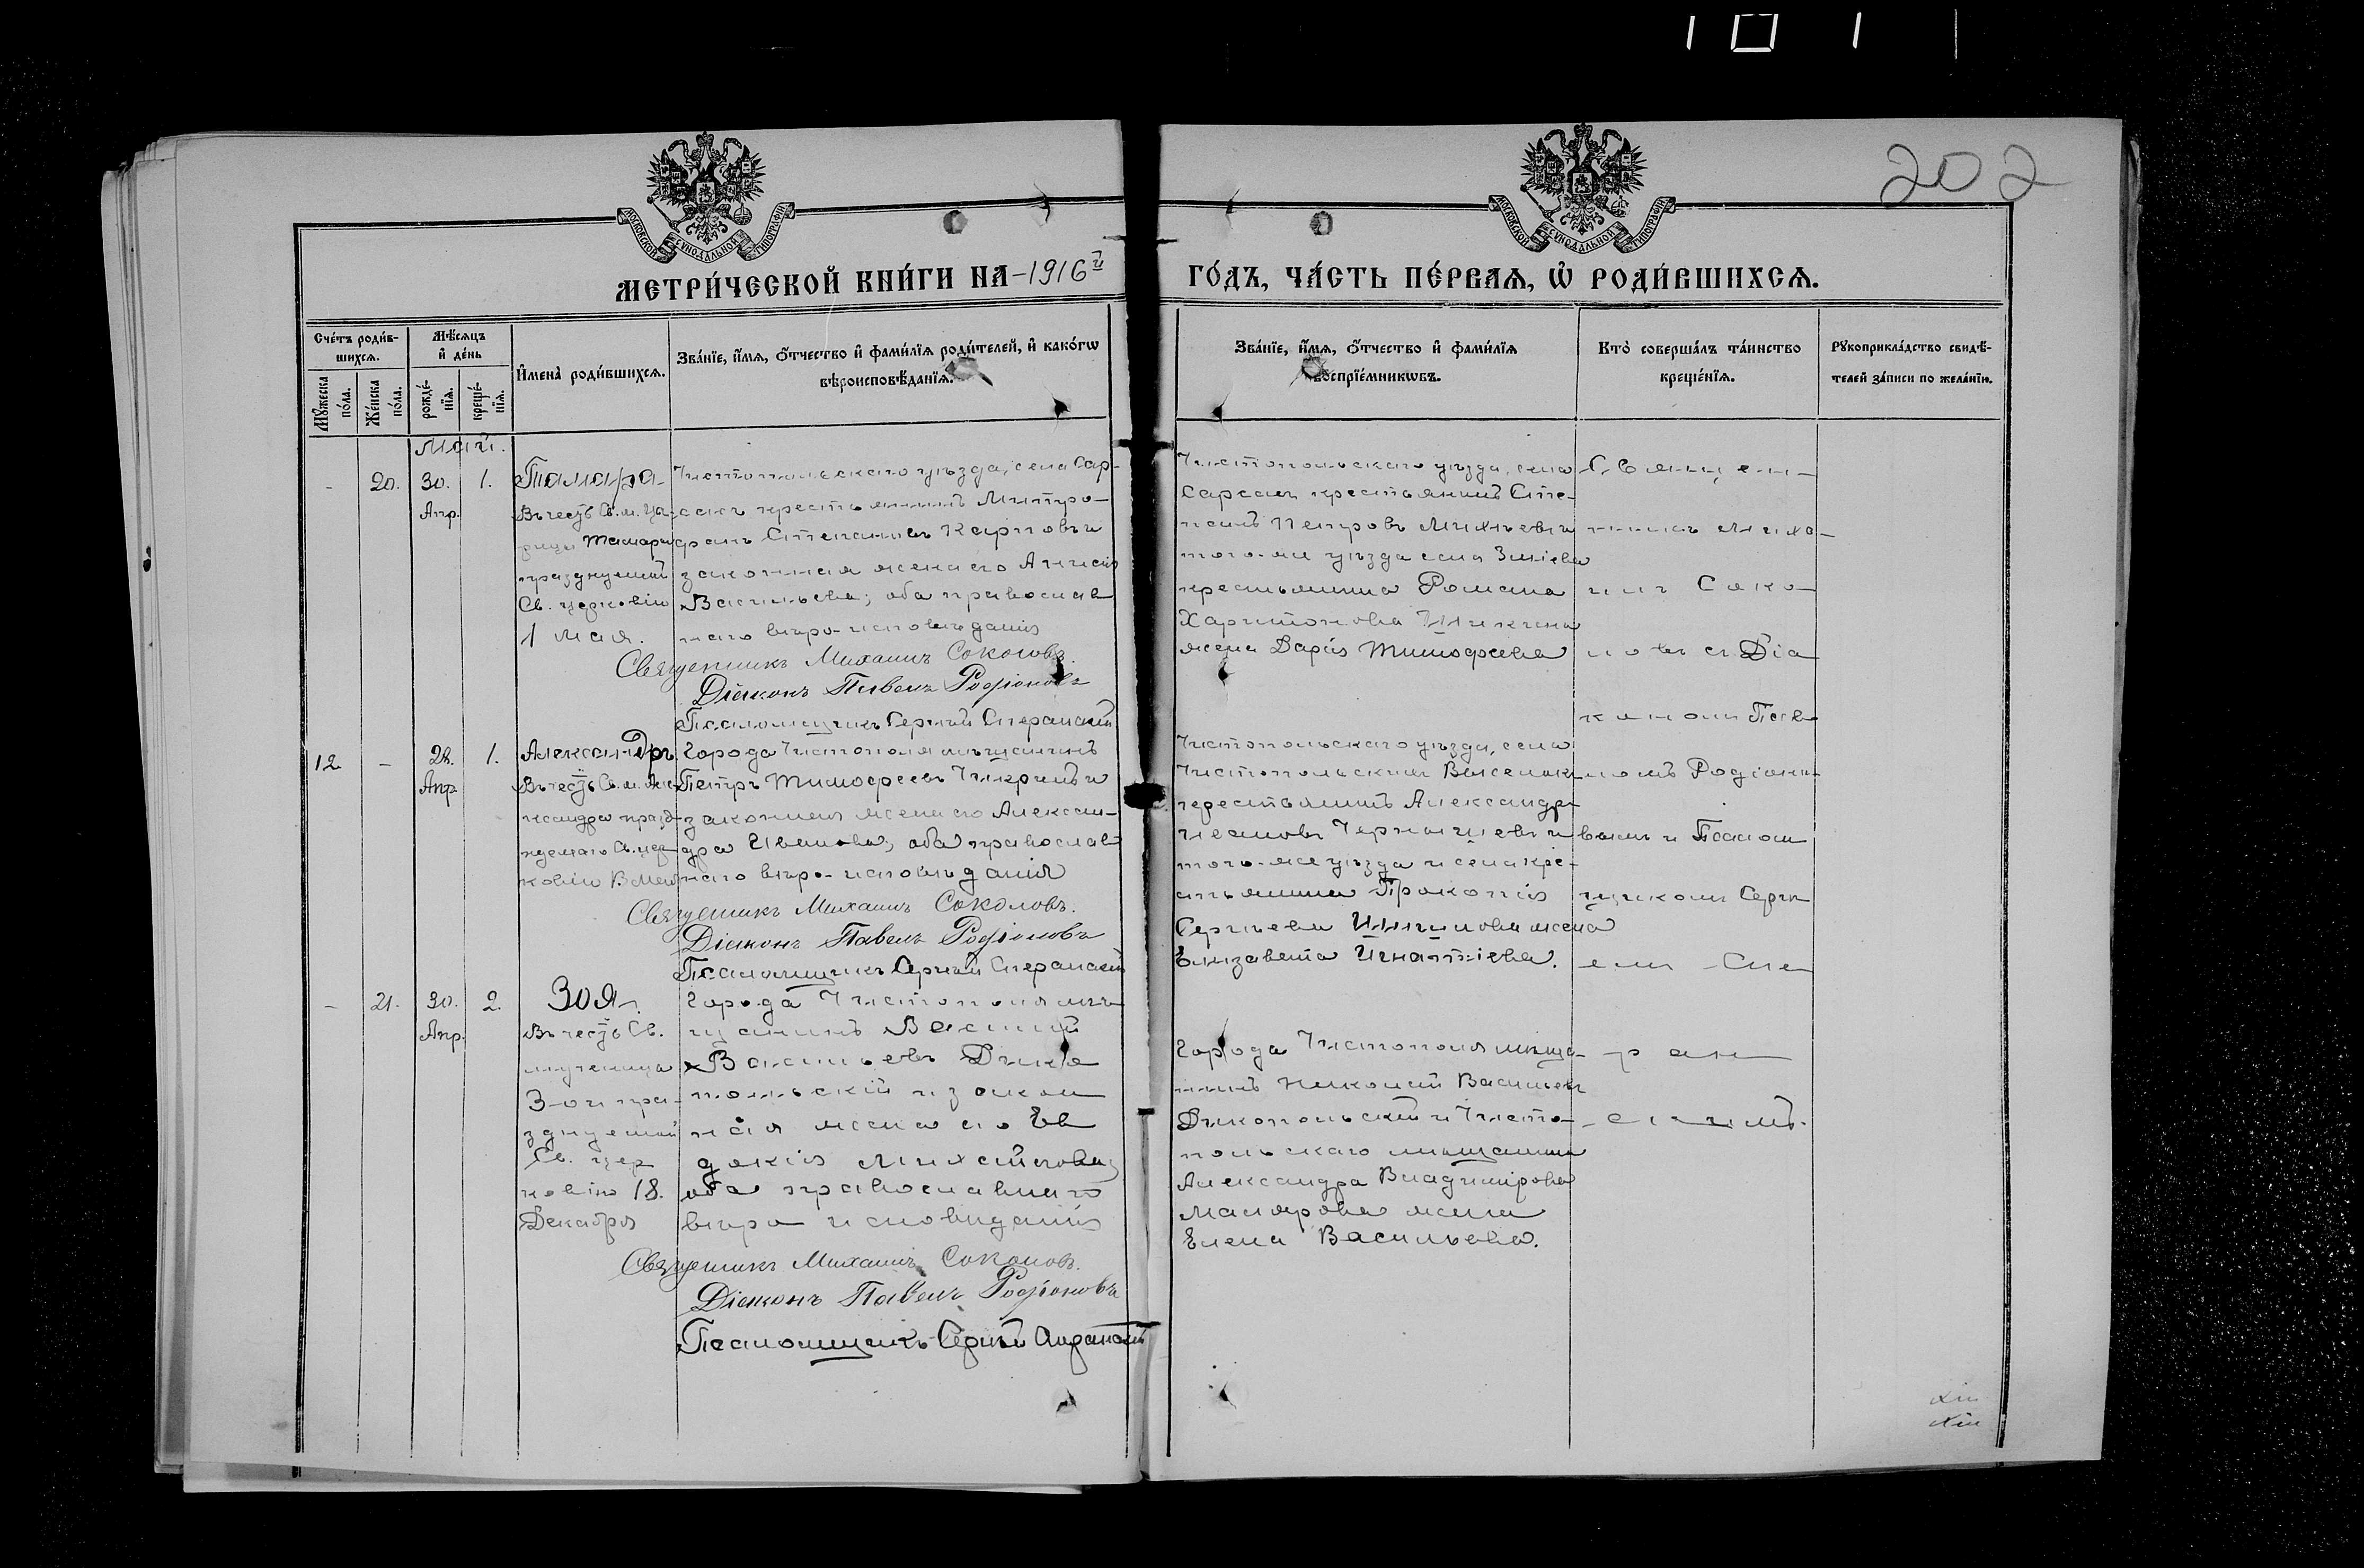 202
МОСКОВСКОЙ СѴНОДАЛЬНОЙ ТИПОГРАФІИ
МОСКОВСКОЙ СѴНОДАЛЬНОЙ ТИПОГРАФІИ
МЕТРИ́ЧЕСКОЙ КНИ́ГИ НА -1916й
ГО́ДЪ, ЧА́СТЬ ПЕ́РВАѦ, Ѡ҆ РОДИ́ВШИХСѦ.
Сче́тъ роди́в-
шихсѧ.
Мꙋ́жеска по́ла.
Же́нска по́ла.
Мѣ́сѧцъ
и҆ де́нь
рожде́-нїѧ.
креще́-нїѧ.
И҆мена̀ роди́вшихсѧ.
Зва́нїе, и҆́мѧ, ѻ҆́тчество и҆ фами́лїѧ роди́телей, и҆ како́гѡ
вѣроисповѣ́данїѧ.
Зва́нїе, и҆́мѧ, ѻ҆́тчество и҆ фами́лїѧ
воспрїе́мникѡвъ.
Кто̀ соверша́лъ та́инство
креще́нїѧ.
Рꙋкоприкла́дство свидѣ́-
телей за́писи по жела́нїю.
Май.
- 20. 30. 1.
Апр.
Тамара
Въ честь Св. м. Ца-
рицы Тамары
празднуемой
Св. церковію
1 мая.
Чистопольскаго уѣзда, села Сар-
сазъ крестьянинъ Митро-
фанъ Степановъ Карповъ и
законная жена его Анисія
Васильева; оба православ
наго вѣро-исповѣданія
Священникъ Михаилъ Соколовъ.
Діаконъ Павелъ Родіоновъ
Псаломщикъ Сергѣй Сперанскій
Чистопольскаго уѣзда, села
Сарсазъ крестьянинъ Сте-
панъ Петровъ и
того-же уѣзда села Зміева
крестьянина Романа
Харитонова
жена Дарія Тимофеева
12 - 28. 1.
Апр.
Александръ.
Въ честь Св. м. Але-
ксандра празд-
нуемаго Св. цер-
ковію
Города Чистополя мѣщанинъ
Петръ Тимофеевъ и
законная жена его Алексан-
дра Иванова; оба православ
наго вѣро-исповѣданія
Священникъ Михаилъ Соколовъ.
Діаконъ Павелъ Родіоновъ
Псаломщикъ Сергѣй Сперанскій
Чистопольскаго уѣзда, села
Чистопольскихъ Выселокъ
крестьянинъ Александръ
Ивановъ Чернышевъ и
того-же уѣзда и села кре-
стьянина Прокопія
Сергѣева жена
Елизавета Игнатіева.
- 21. 30. 2.
Апр.
Зоя.
Въ честь Св.
мученица
Зои пра-
зднуемой
Св. цер
ковію 18.
Декабря
Города Чистополя мѣ-
щанинъ Василій
Васильевъ Дико
польскій и закон
ная жена его Ев
докія Михайлова;
оба православнаго
вѣро исповѣданія
Священникъ Михаилъ Соколовъ.
Діаконъ Павелъ Родіоновъ
Псаломщикъ Сергѣй Сперанскій
Города Чистополя мѣща-
нинъ Николай Васильевъ
Дикопольскій и Чисто-
польскаго мѣщанина
Александра Владимірова
Маіорова жена
Елена Васильева.
Священ-
никъ Миха-
илъ Соко-
ловъ съ Діа
кономъ Пав
ломъ Родіоно-
вымъ и Псалом
щикомъ Серги
емъ Спе
ран
скимъ.